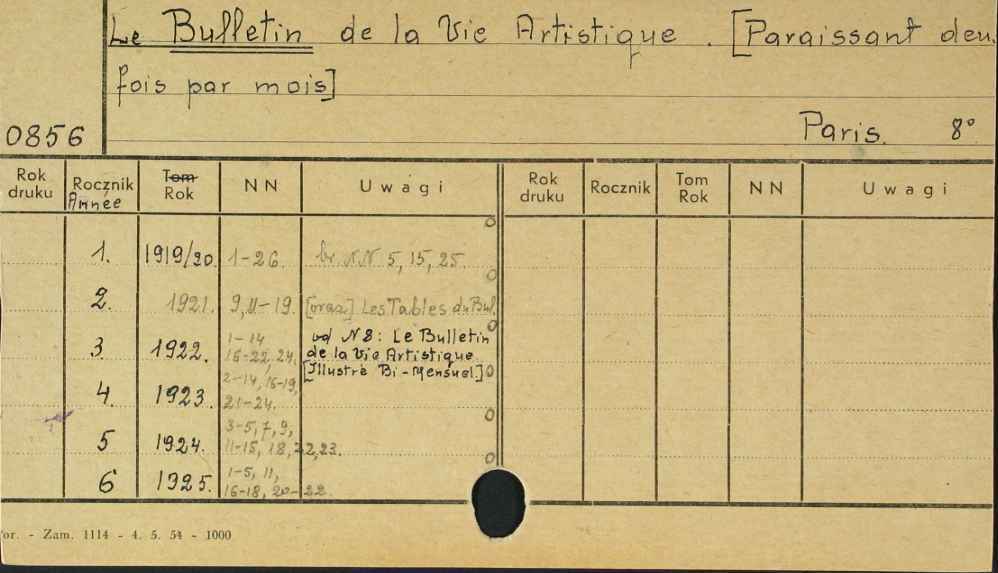 Le Bulletin de la Vie Artistique. [Paraissant deu
fois par mois]
0856 Paris. 8°
Rok druku Rocznik Année Tom Rok N N Uwagi Rok druku Rocznik Tom Rok N N Uwagi
1. 1919/20. 1-26. br. NN 5, 15, 25.
2. 1921. 9, 11-19. [oraz] Les Tables du Bul.
3. 1922. 1-14 16-22, 24. od N 8: Le Bulletin
de la Vie Artistique
[Illustré Bi-Mensuel]
4. 1923. 2-14, 16-19,
21-24.
5 1924. 3-5, 7, 9,
11-15, 18, 22, 23.
6 1925. 1-5, 11,
16-18, 20-22.
or. - Zam. 1114 - 4. 5. 54 - 1000